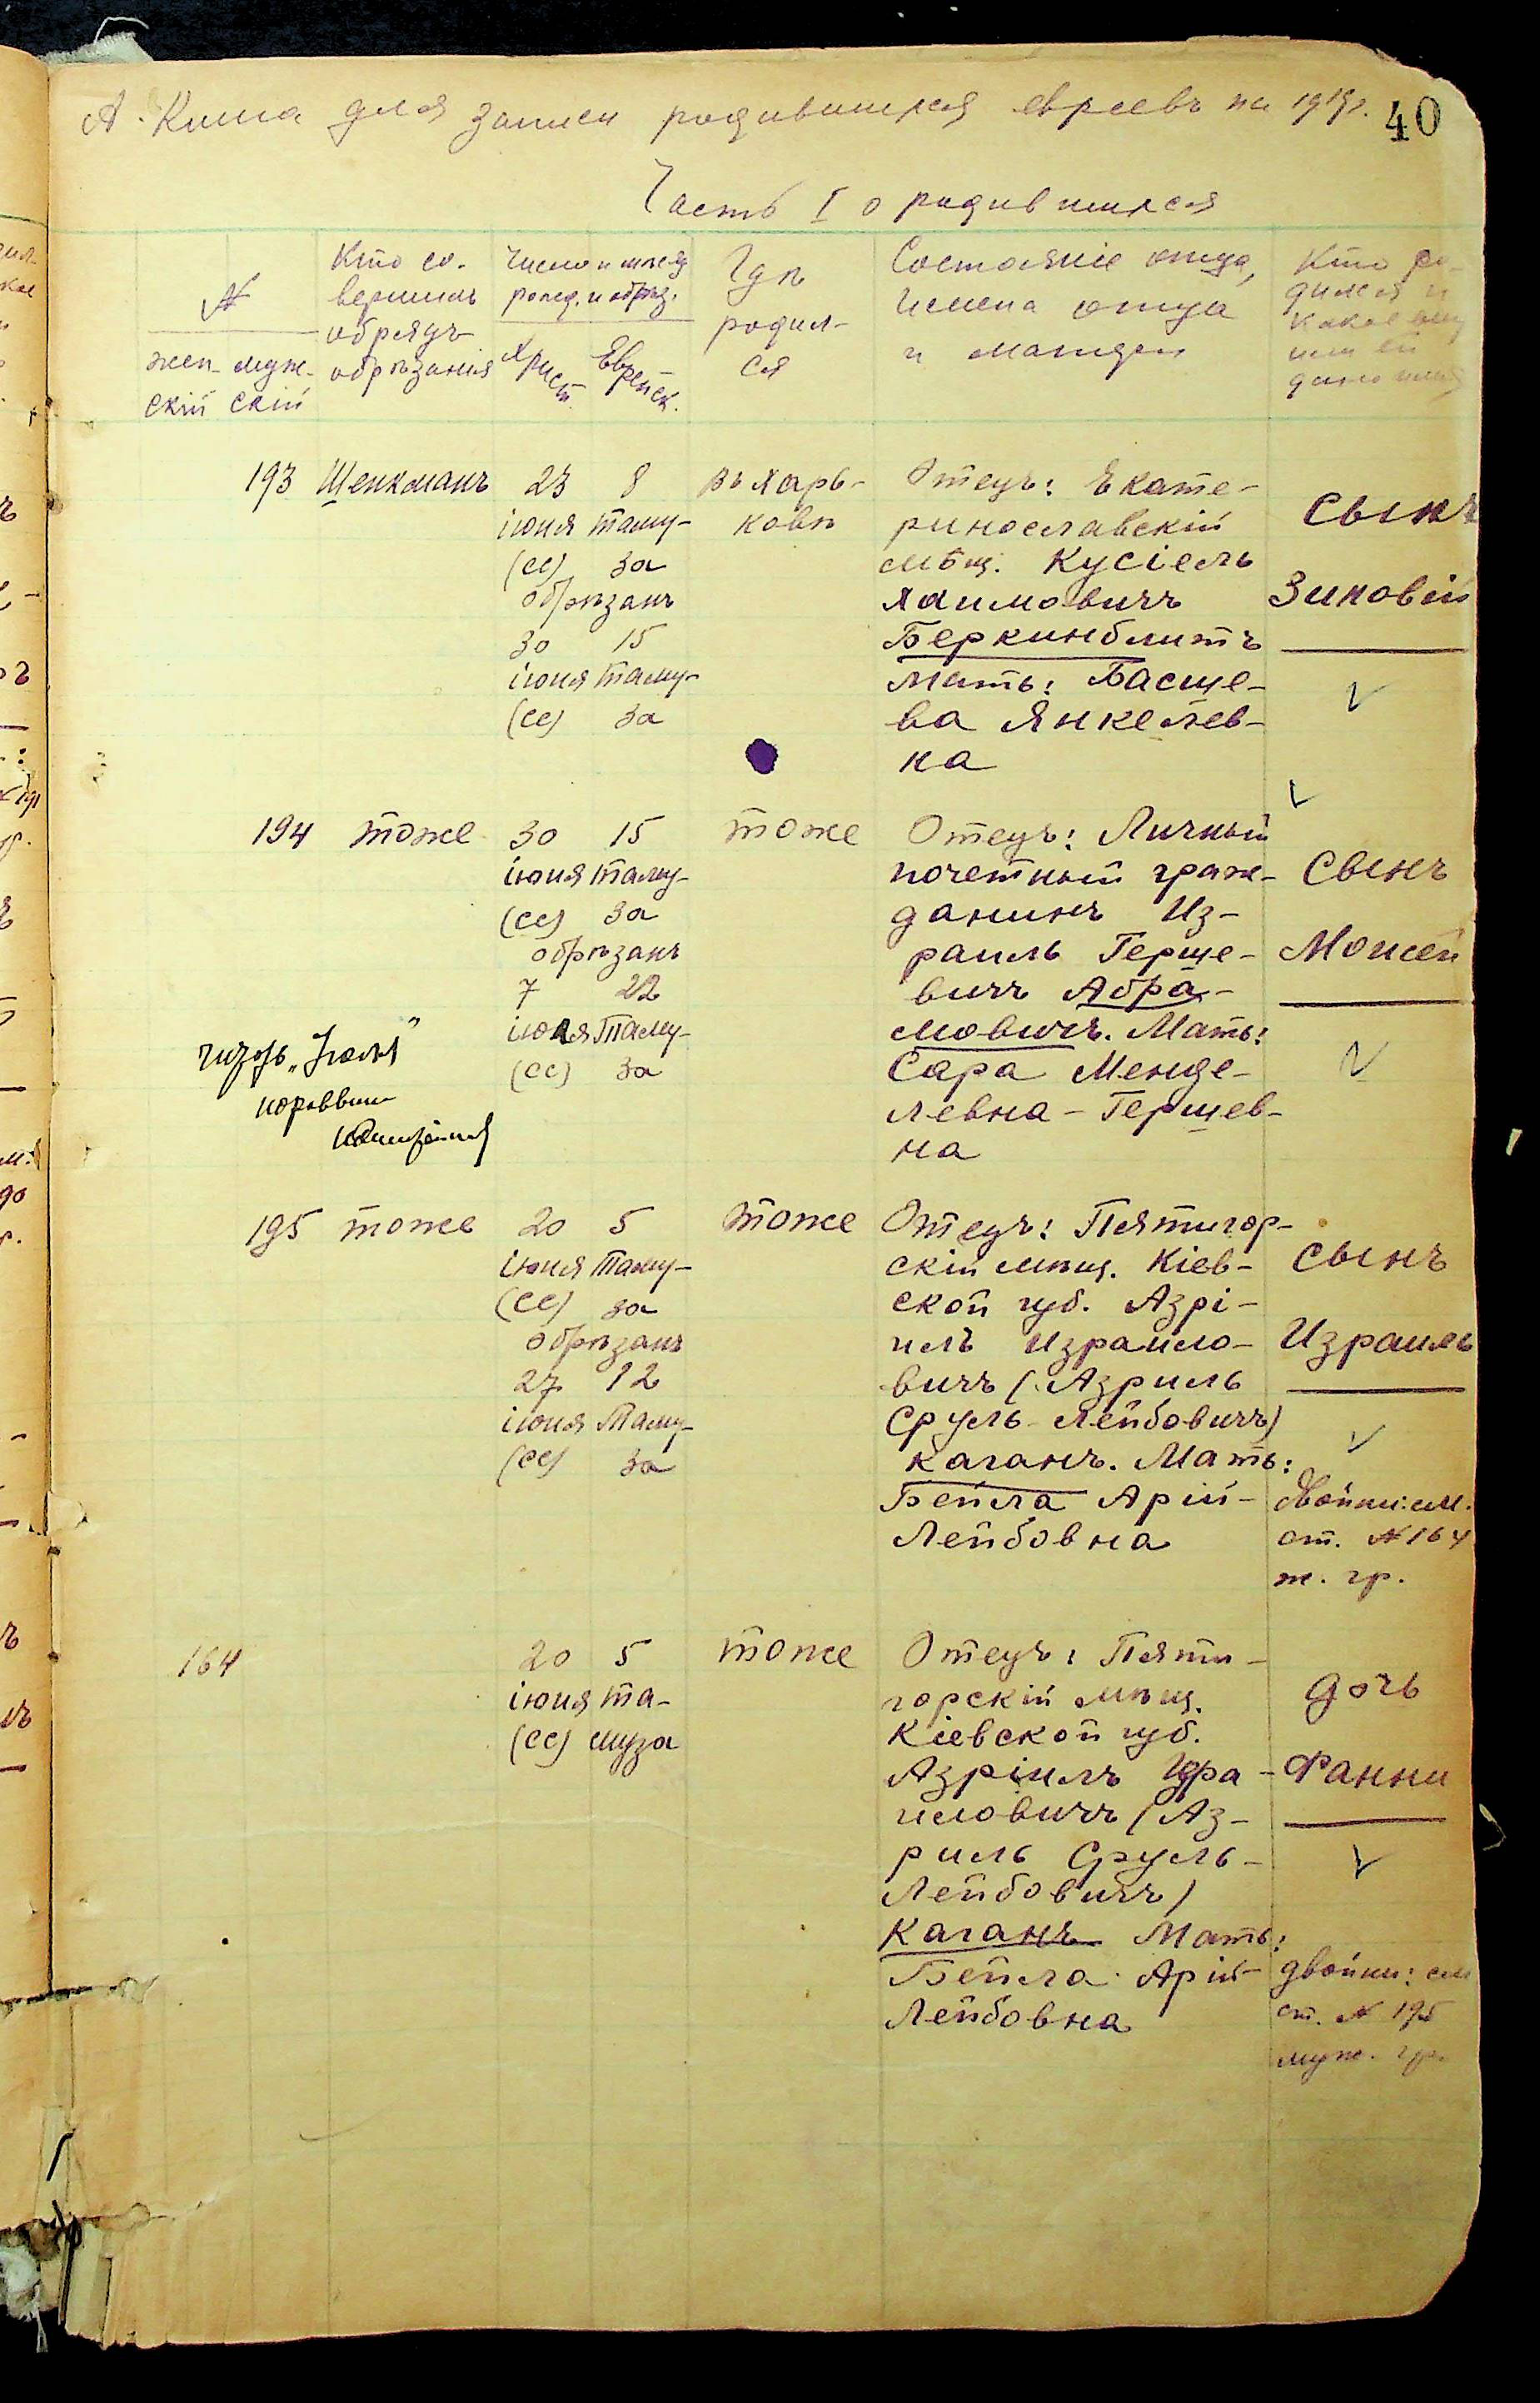 А. Книга для записи родившихся евреевъ на 1919г. 40
Часть I о родившихся
№
жен- муж-
скій скій
Кто со-
вершилъ
обрядъ
обрѣзанія
Число и мѣсяц
рожд. и обрѣз.
Христ. Еврейск.
Гдѣ
родил-
ся
Состояніе отца,
имена отца
и матери
Кто ро-
дился и
какое ему
или ей
дано имя
193 Шенкманъ 23 8 въ Харь-
ковѣ
іюня таму-
(сс) за
обрѣзанъ
30 15
іюня таму-
(сс) за
Отецъ: Екате-
ринославскій
мѣщ. Кусіель
Хаимовичъ
Беркинблитъ
Мать: Басше-
ва Янкелев-
на
сынъ
Зиновій
194 тоже 30 15 тоже
іюня таму-
(сс) за
обрѣзанъ
7 22
іюля Таму-
(сс) за
Отецъ: Личный
почетный граж-
данинъ Из-
раиль Герше-
вичъ Абра-
мовичъ. Мать:
Сара Менде-
левна-Гершев-
на
Сынъ
Моисей
"Іюля"
195 тоже 20 5 тоже
іюня Таму-
(сс) за
обрѣзанъ
27 12
іюня Таму-
(сс) за
Отецъ: Пятигор-
скій мѣщ. Кіев-
ской губ. Азрі-
илъ Израило-
вичъ (Азриль
Сруль-Лейбовичъ)
Каганъ. Мать:
Бейла Арій-
Лейбовна
сынъ
Израиль
двойни: см.
ст. № 164
ж. гр.
164 20 5 тоже
іюня та-
(сс) муза
Отецъ: Пяти-
горскій мѣщ.
Кіевской губ.
Азріилъ Изра-
иловичъ (Аз-
риль Сруль-
Лейбовичъ)
Каганъ Мать:
Бейла Арій-
Лейбовна
дочь
Фанни
двойни: см
ст. № 195
муж. гр.